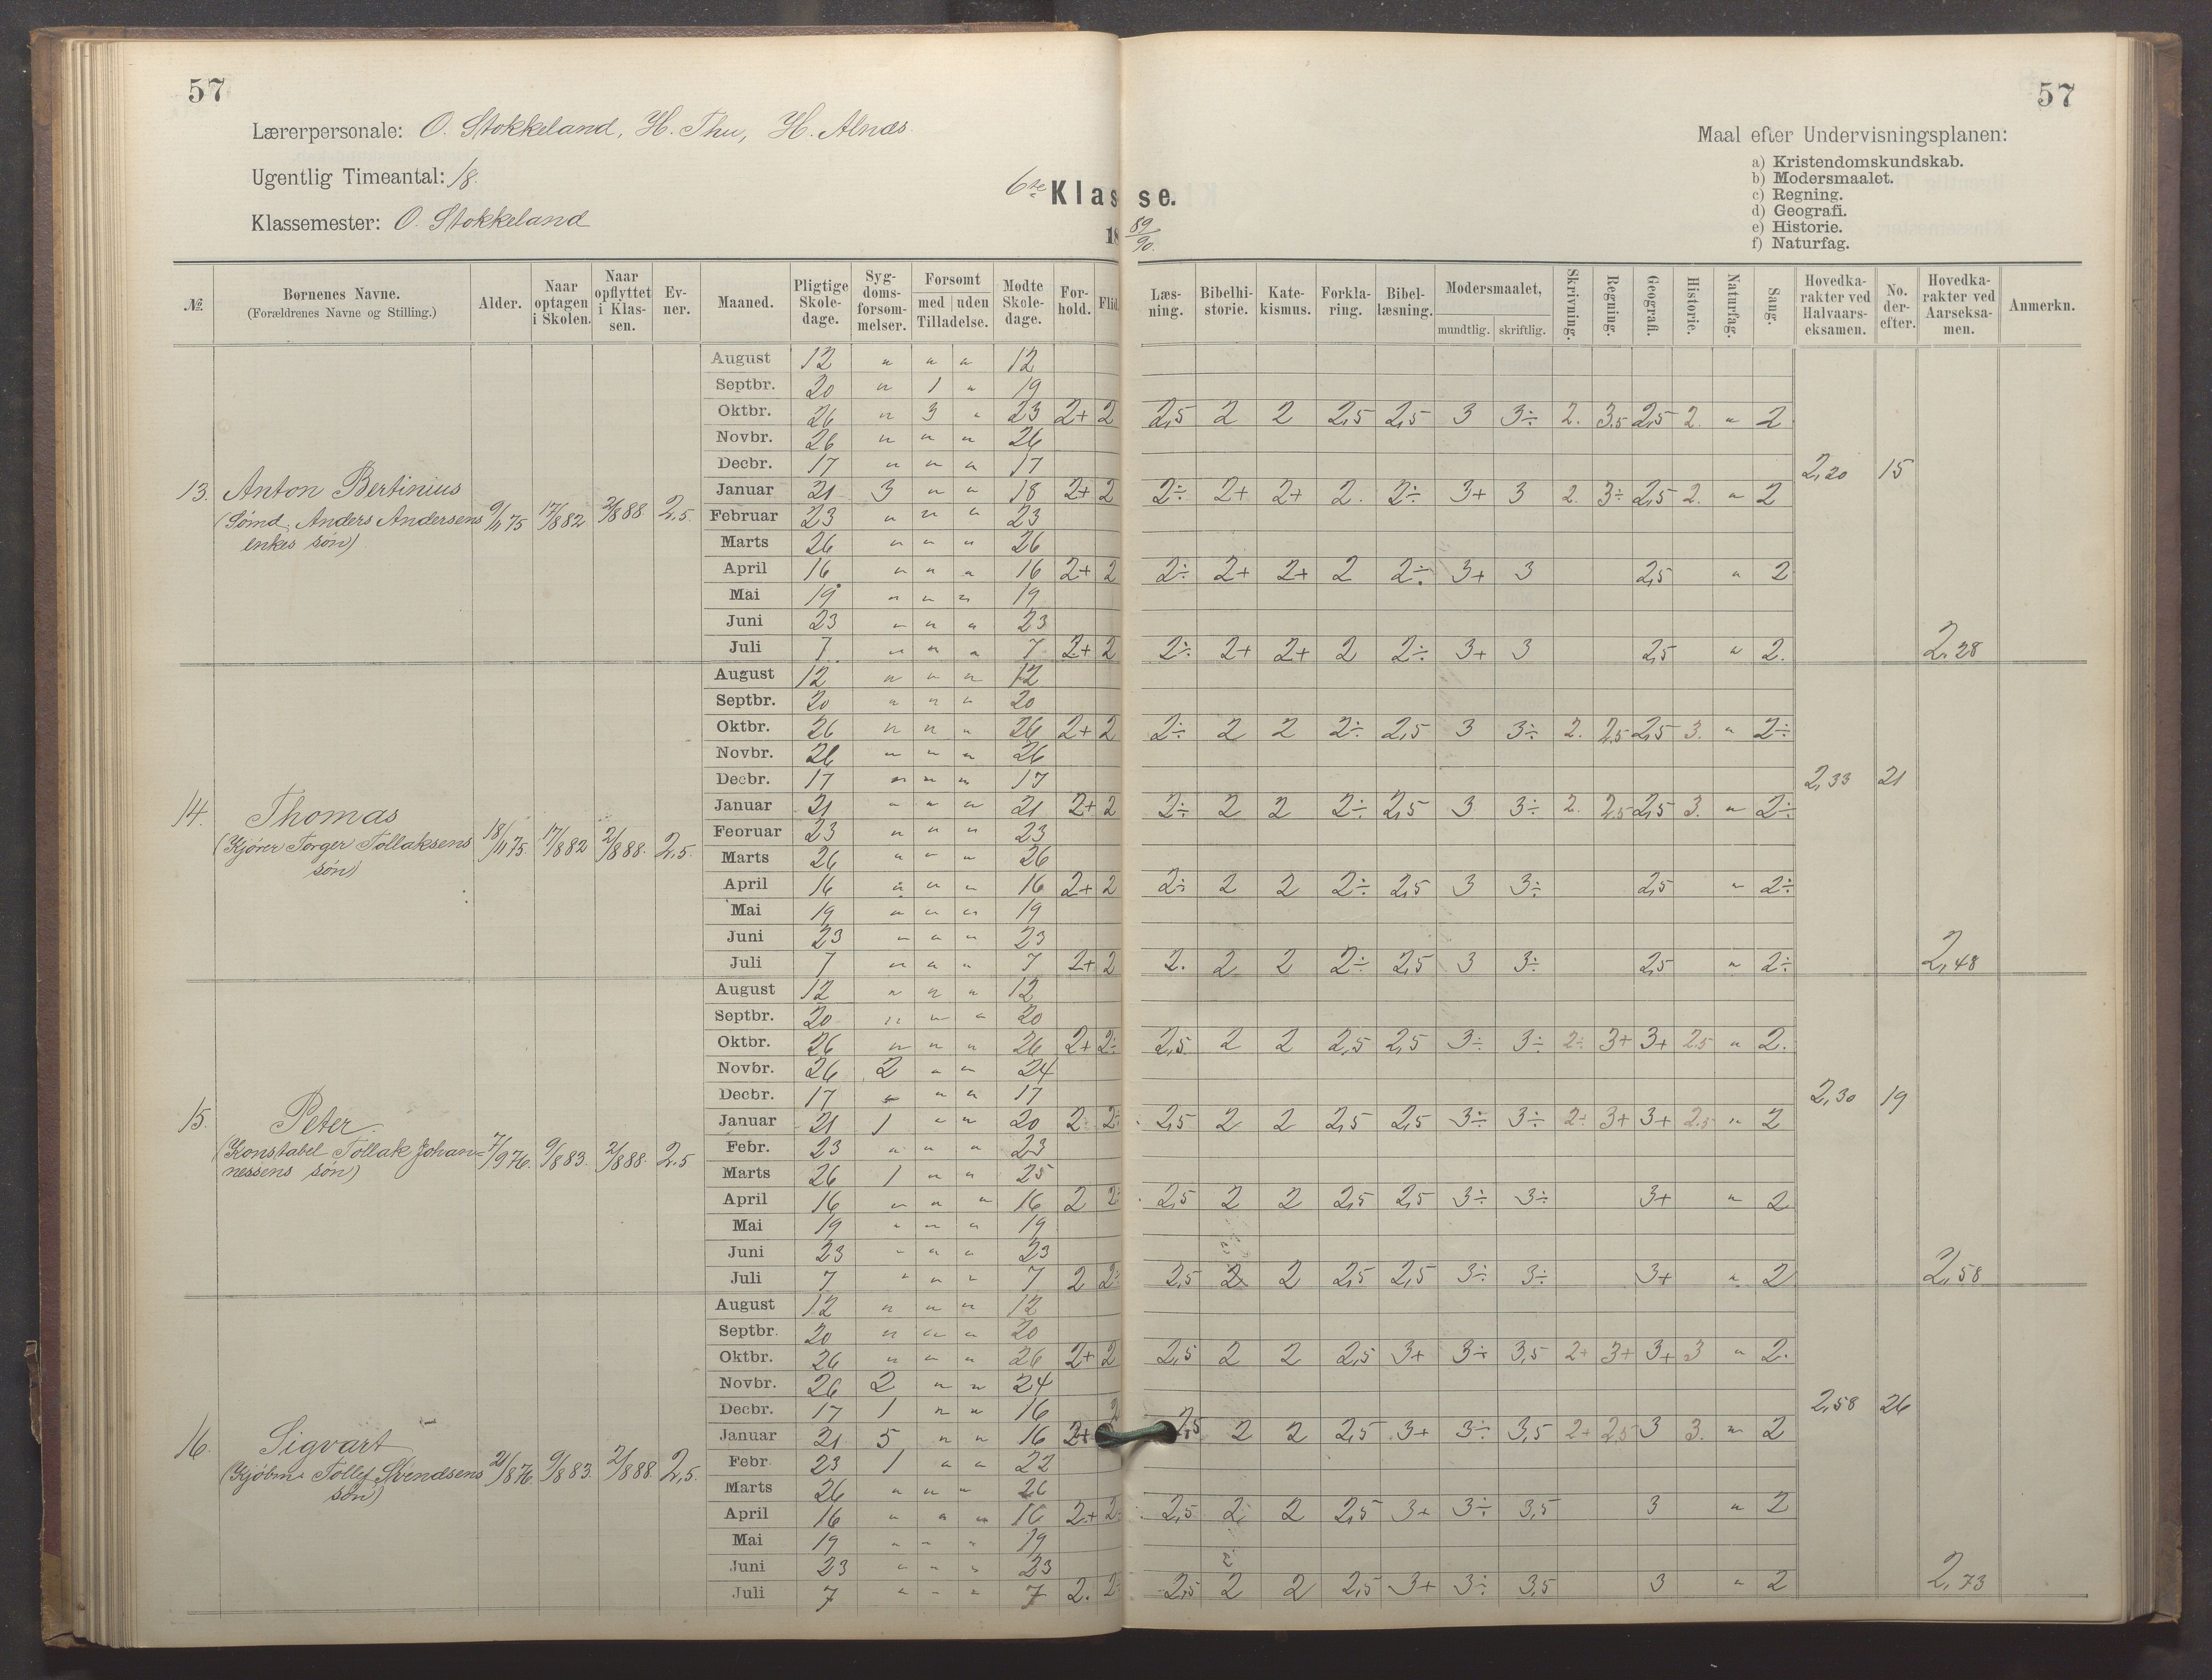 57
57
Lærerpersonale: O. Stokkeland, H. Thu, H. Alnæs.
Ugentlig Timeantal: 18.
Klassemester: O. Stokkeland
6te Klasse.
18 89/90.
Maal efter Undervisningsplanen:
a) Kristendomskundskab.
b) Modersmaalet.
c) Regning.
d) Geografi.
e) Historie.
f) Naturfag.
№. | Børnenes Navne. (Forældrenes Navne og Stilling.) | Alder. | Naar optagen i Skolen. | Naar opflyttet i Klassen. | Evner. | Maaned. | Pligtige Skoledage. | Sygdomsforsømmelser. | Forsømt med | uden Tilladelse. | Mødte Skoledage. | Forhold. | Flid. | Læsning. | Bibelhistorie. | Katekismus. | Forklaring. | Bibellæsning. | Modersmaalet, mundtlig. | skriftlig. | Skrivning. | Regning. | Geografi. | Historie. | Naturfag. | Sang. | Hovedkarakter ved Halvaarseksamen. | No. derefter. | Hovedkarakter ved Aarseksamen. | Anmerkn.
13. Anton Bertinius
(Sømd. Anders Andersens
enkes søn)
9/11 75 17/8 82 2/8 88 2,5.
August 12 " " " 12
Septbr. 20 " 1 " 19
Oktbr. 26 " 3 " 23 2+ 2 2,5 2 2 2,5 2,5 3 3÷ 2. 3,5 2,5 2. " 2
Novbr. 26 " " " 26
Decbr. 17 " " " 17 2,20 15
Januar 21 3 " " 18 2+ 2 2÷ 2+ 2+ 2. 2÷ 3+ 3 2. 3÷ 2,5 2. " 2
Februar 23 " " " 23
Marts 26 " " " 26
April 16 " " " 16 2+ 2 2÷ 2+ 2+ 2 2÷ 3+ 3 2,5 " 2
Mai 19 " " " 19
Juni 23 " " " 23
Juli 7 " " " 7 2+ 2 2÷ 2+ 2+ 2 2÷ 3+ 3 2,5 " 2. 2,28
14. Thomas
(Kjører Torger Tollaksens
søn)
18/11 75. 17/8 82 2/8 88. 2,5.
August 12 " " " 12
Septbr. 20 " " " 20
Oktbr. 26 " " " 26 2+ 2 2÷ 2 2 2÷ 2,5 3 3÷ 2. 2,5 2,5 3. " 2÷
Novbr. 26 " " " 26
Decbr. 17 " " " 17 2,33 21
Januar 21 " " " 21 2+ 2 2÷ 2 2 2÷ 2,5 3 3÷ 2. 2,5 2,5 3. " 2÷
Feoruar 23 " " " 23
Marts 26 " " " 26
April 16 " " " 16 2+ 2 2÷ 2 2 2÷ 2,5 3 3÷ 2,5 " 2÷
Mai 19 " " " 19
Juni 23 " " " 23
Juli 7 " " " 7 2+ 2 2. 2 2 2÷ 2,5 3 3÷ 2,5 " 2÷ 2,48
15. Peter
(Konstabel Tollak Johan-
nessens søn)
7/9 76. 9/8 83. 2/8 88. 2,5
August 12 " " " 12
Septbr. 20 " " " 20
Oktbr. 26 " " " 26 2+ 2÷ 2,5 2 2 2,5 2,5 3÷ 3÷ 2÷ 3+ 3+ 2,5 " 2.
Novbr. 26 2 " " 24
Decbr. 17 " " " 17 2,30 19
Januar 21 1 " " 20 2 2÷ 2,5 2 2 2,5 2,5 3÷ 3÷ 2÷ 3+ 3+ 2,5 " 2
Febr. 23 " " " 23
Marts 26 1 " " 25
April 16 " " " 16 2 2÷ 2,5 2 2 2,5 2,5 3÷ 3÷ 3+ " 2
Mai 19 " " " 19
Juni 23 " " " 23
Juli 7 " " " 7 2 2÷ 2,5 2 2 2,5 2,5 3÷ 3÷ 3+ " 2 2,58
16. Sigvart
(Kjøbm. Tollef Svendsens
søn)
21/8 76. 9/8 83. 2/8 88. 2,5.
August 12 " " " 12
Septbr. 20 " " " 20
Oktbr. 26 " " " 26 2+ 2 2,5 2 2 2,5 3+ 3÷ 3,5 2+ 3+ 3+ 3 " 2.
Novbr. 26 2 " " 24
Decbr. 17 1 " " 16 2,58 26
Januar 21 5 " " 16 2+ 2,5 2 2 2,5 3+ 3÷ 3,5 2+ 2,5 3 3. " 2
Febr 23 1 " " 22
Marts 26 " " " 26
April 16 " " " 16 2+ 2 2,5 2 2 2,5 3+ 3÷ 3,5 3 " 2
Mai 19 " " " 19
Juni 23 " " " 23
Juli 7 " " " 7 2. 2÷ 2,5 2 2 2,5 3+ 3÷ 3,5 3 " 2 2,73